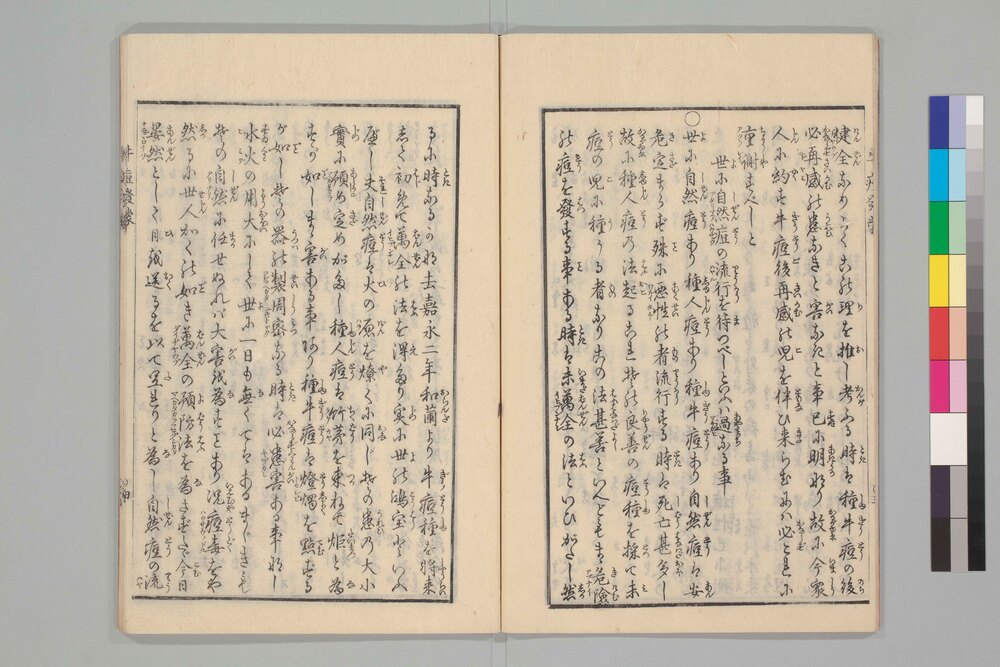 健全なめて此理を推し考ふる時は種牛痘の後
必再感の患なきと害なきと事已に明なり故に今衆
人に約す牛痘後再感の児を伴ひ来らむには必これに
重謝すべしと
世に自然痘の流行を待つべしといふは過なる事
○世に自然痘あり種人痘あり種牛痘あり自然痘は安
危定まらず殊に悪性の者流行する時は死亡甚多し
故に種人痘の法起るこれ其の良善の痘種を採て未
痘の児に種うる者なり其の法甚善といへども其危険
の痘を発する事ある時は未萬全の法といひがたし然
るに時なるかな去嘉永二年和蘭より牛痘種を将来
して初めて萬全の法を得たり実に世の鴻宝といふ
べし夫自然痘は火の原を燎くに同じ其の患の大小
實に預め定めがたし種人痘は竹茅を束ねて炬と為
すが如しまま害ある事あり種牛痘は燈燭を點する
が如し其の器の製周密なる時は必患害ある事なし
水火の用大にして世に一日も無くてはあるまじきも
其の自然に任せぬれば大害を為すことあり况痘毒をや
然るに世人かくの如き萬全の預防法を為さずして今日
晏然として日を送るを以て足れりと為し自然痘の流